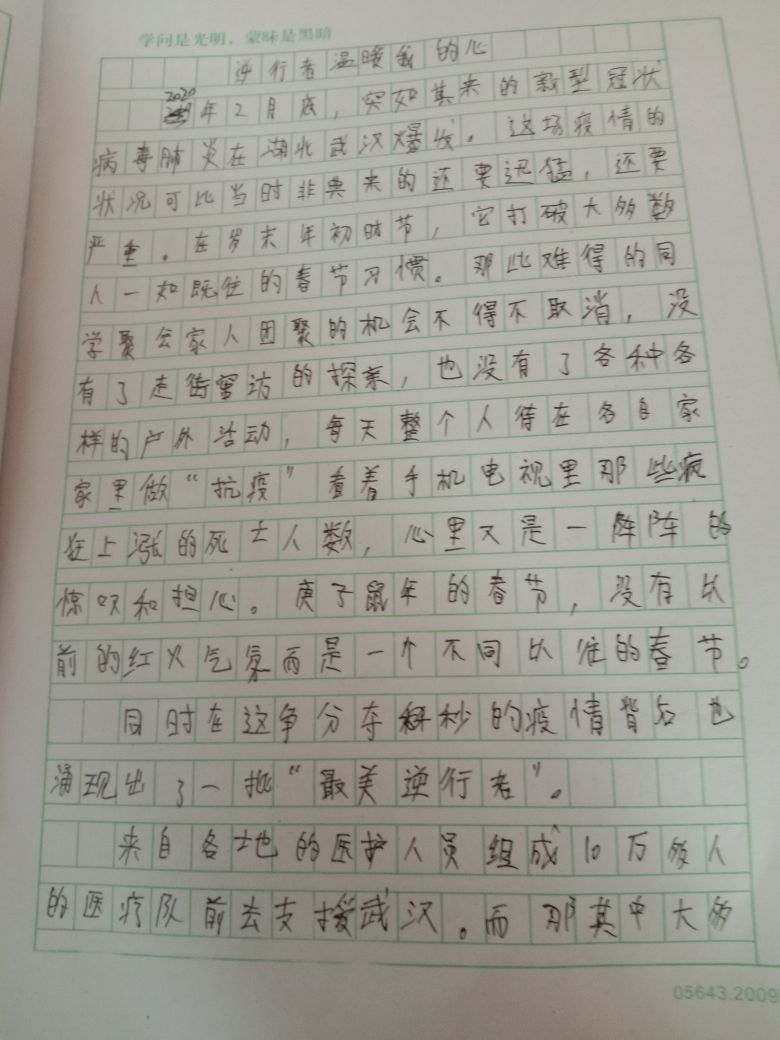 学问是光明，蒙昧是黑暗
逆行者温暖我的心
2020年2月底，突如其来的新型冠状
病毒肺炎在湖北武汉爆发。这场疫情的
状况可比当时非典来的还要迅猛，还要
严重。在岁末年初时节，它打破大多数
人一如既往的春节习惯。那些难得的同
学聚会家人团聚的机会不得不取消，没
有了走街窜访的探亲，也没有了各种各
样的户外活动，每天整个人待在各自家
家里做“抗疫”看着手机电视里那些疯
狂上涨的死亡人数，心里又是一阵阵的
惊叹和担心。庚子鼠年的春节，没有以
前的红火气氛而是一个不同以往的春节。
同时在这争分夺秒的疫情背后也
涌现出了一批“最美逆行者”。
来自各地的医护人员组成10万多人
的医疗队前去支援武汉。而那其中大多
05643.2009